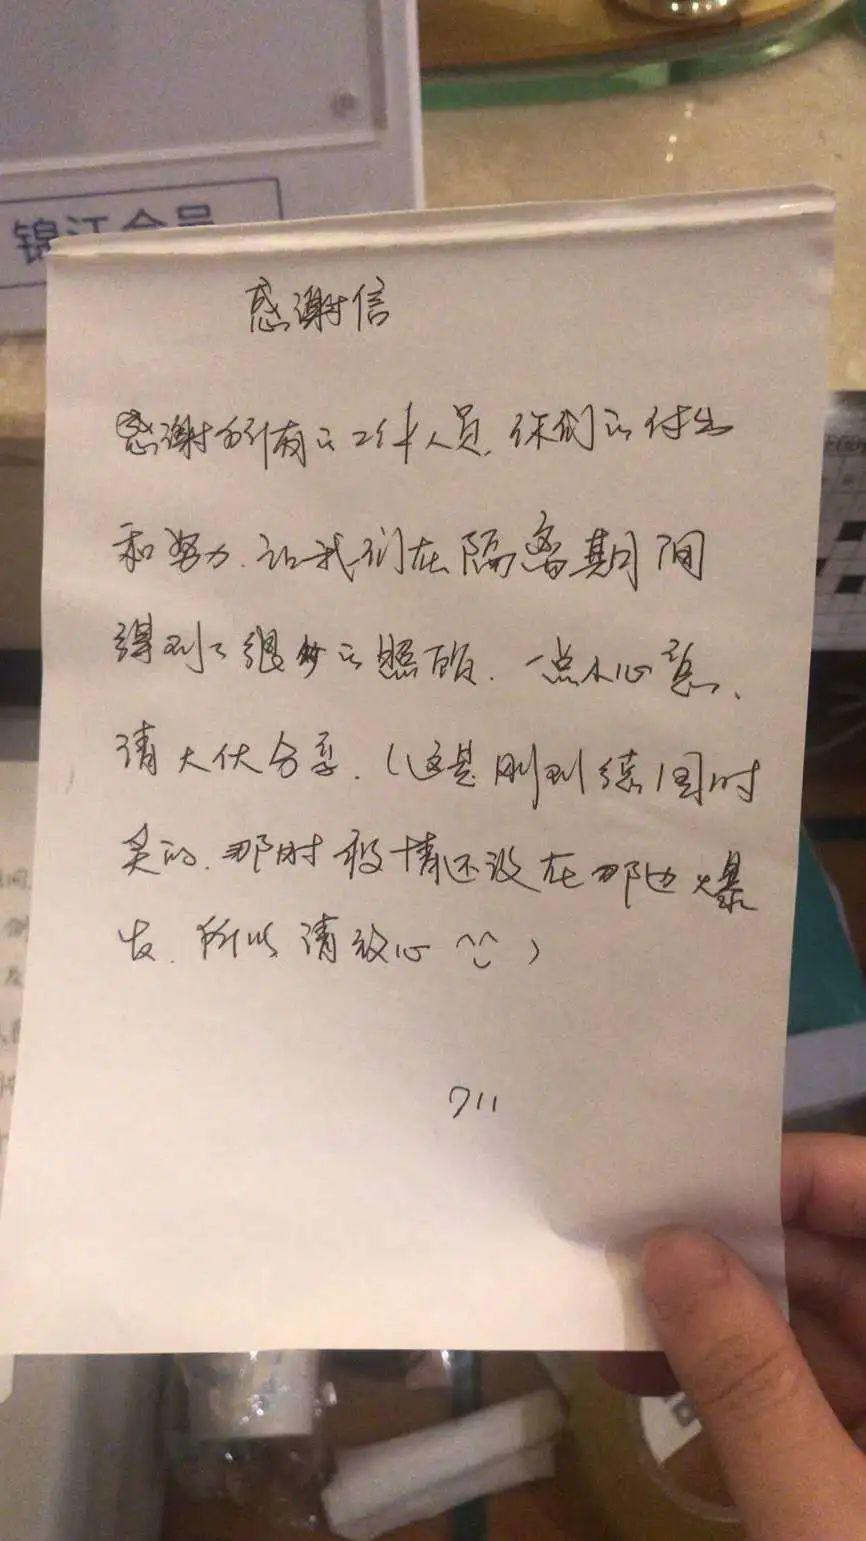 锦江会员
感谢信
感谢所有的工作人员,你们的付出
和努力,让我们在隔离期间
得到了很多的照顾,一点小心意,
请大伙分享,(这是刚到德国时
买的,那时疫情还没在那边爆
发,所以请放心^^)
711